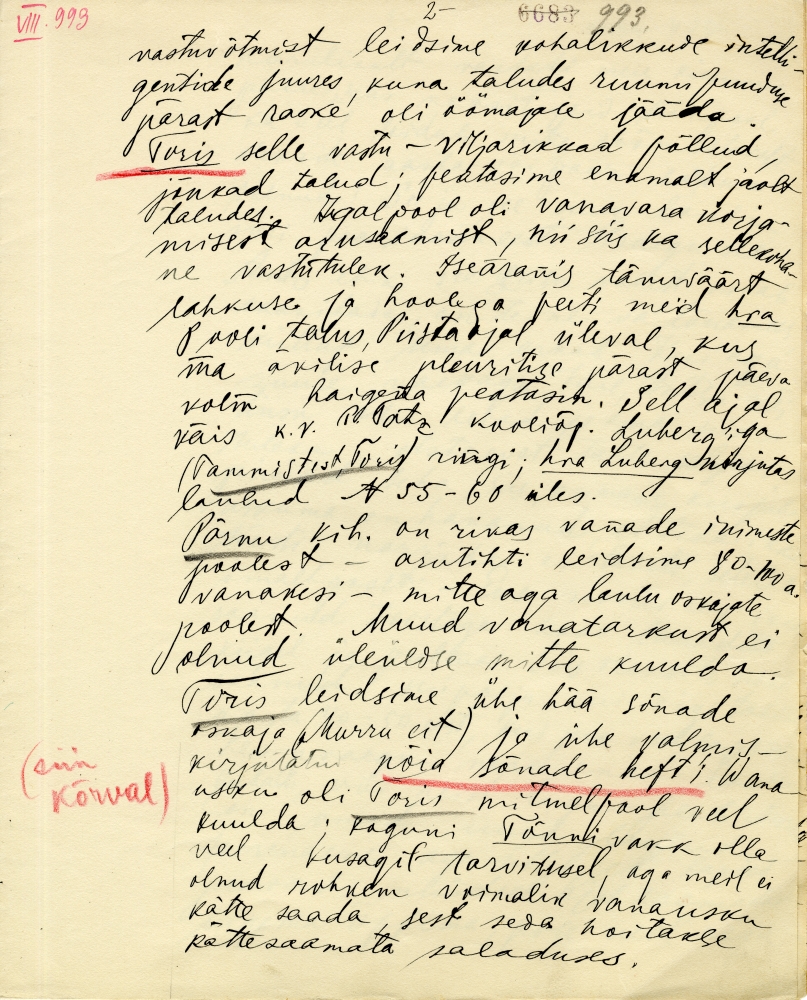 VIII. 993
2-
6683 993.
vastuvõtmist leidsime kohalikkude intelli-
gentide juures, kuna taludes ruumi puuduse
pärast raske oli öömajale jääda.
Toris selle vastu - viljarikkad põllud,
jõukad talud; peatasime enamalt jaolt
taludes. Igalpool oli vanavara korja-
misest arusaamist, niisiis ka sellekoha-
ne vastutulek. Iseäranis tänuväärt
lahkuse ja hoolega peeti meid hra
Pooli talus, Piistaojal üleval, kus
ma äkilise pleuritise pärast päeva
kolm haigena peatasin. Sell ajal
käis k.v. P. Tatz kooliõp. Luberg'iga
(Tammistest, Toris) ringi; hra Luberg kirjutas
laulud № 55-60 üles.
Pärnu kih. on rikas vanade inimeste
poolest - arutihti leidsime 80-100 a.
vanakesi - mitte aga laulu oskajate
poolest. Muud vanatarkust ei
olnud üleüldse mitte kuulda.
Toris leidsime ühe hää sõnade
oskaja (Murru eit) ja ühe valmis-
kirjutatu nõia sõnade heft'i. Wana-
(siin
kõrval)
usku oli Toris mitmelpool veel
kuulda; koguni Tõnni vakk olla
veel kusagil tarvitusel, aga meil ei
olnud rohkem võimalik vanausku
kätte saada, sest seda hoitakse
kättesaamata saladuses.